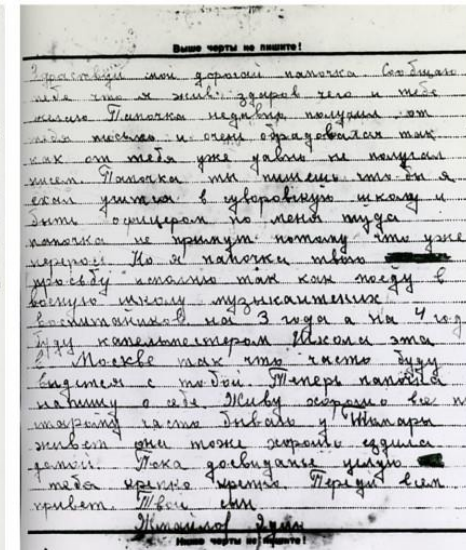 Выше черты не пишите!
Здраствуй мой дорогой папочка Сообщаю
тебе что я жив здоров чего и тебе
желаю Папочка недавно получил от
тебя письмо и очень обрадовался так
как от тебя уже давно не получал
писем Папочка ты пишешь что бы я
ехал учится в суворовскую школу и
быть офицером но меня туда
папочка не примут потому что уже
перерос Но я папочка твою
просьбу исполню так как поеду в
военую школу музыкантских
воспитаников на 3 года а на 4 год
буду капельмейстером Школа эта
в Москве так что часто буду
видется с тобой. Теперь папочка
напишу о себе. Живу хорошо все п
старому часто бываю у Тамары
живет она тоже хорошо ездила
домой. Пока досвиданье целую
тебя крепко крепко. Передй всем
привет. Твой сын
Ниже черты не пишите!